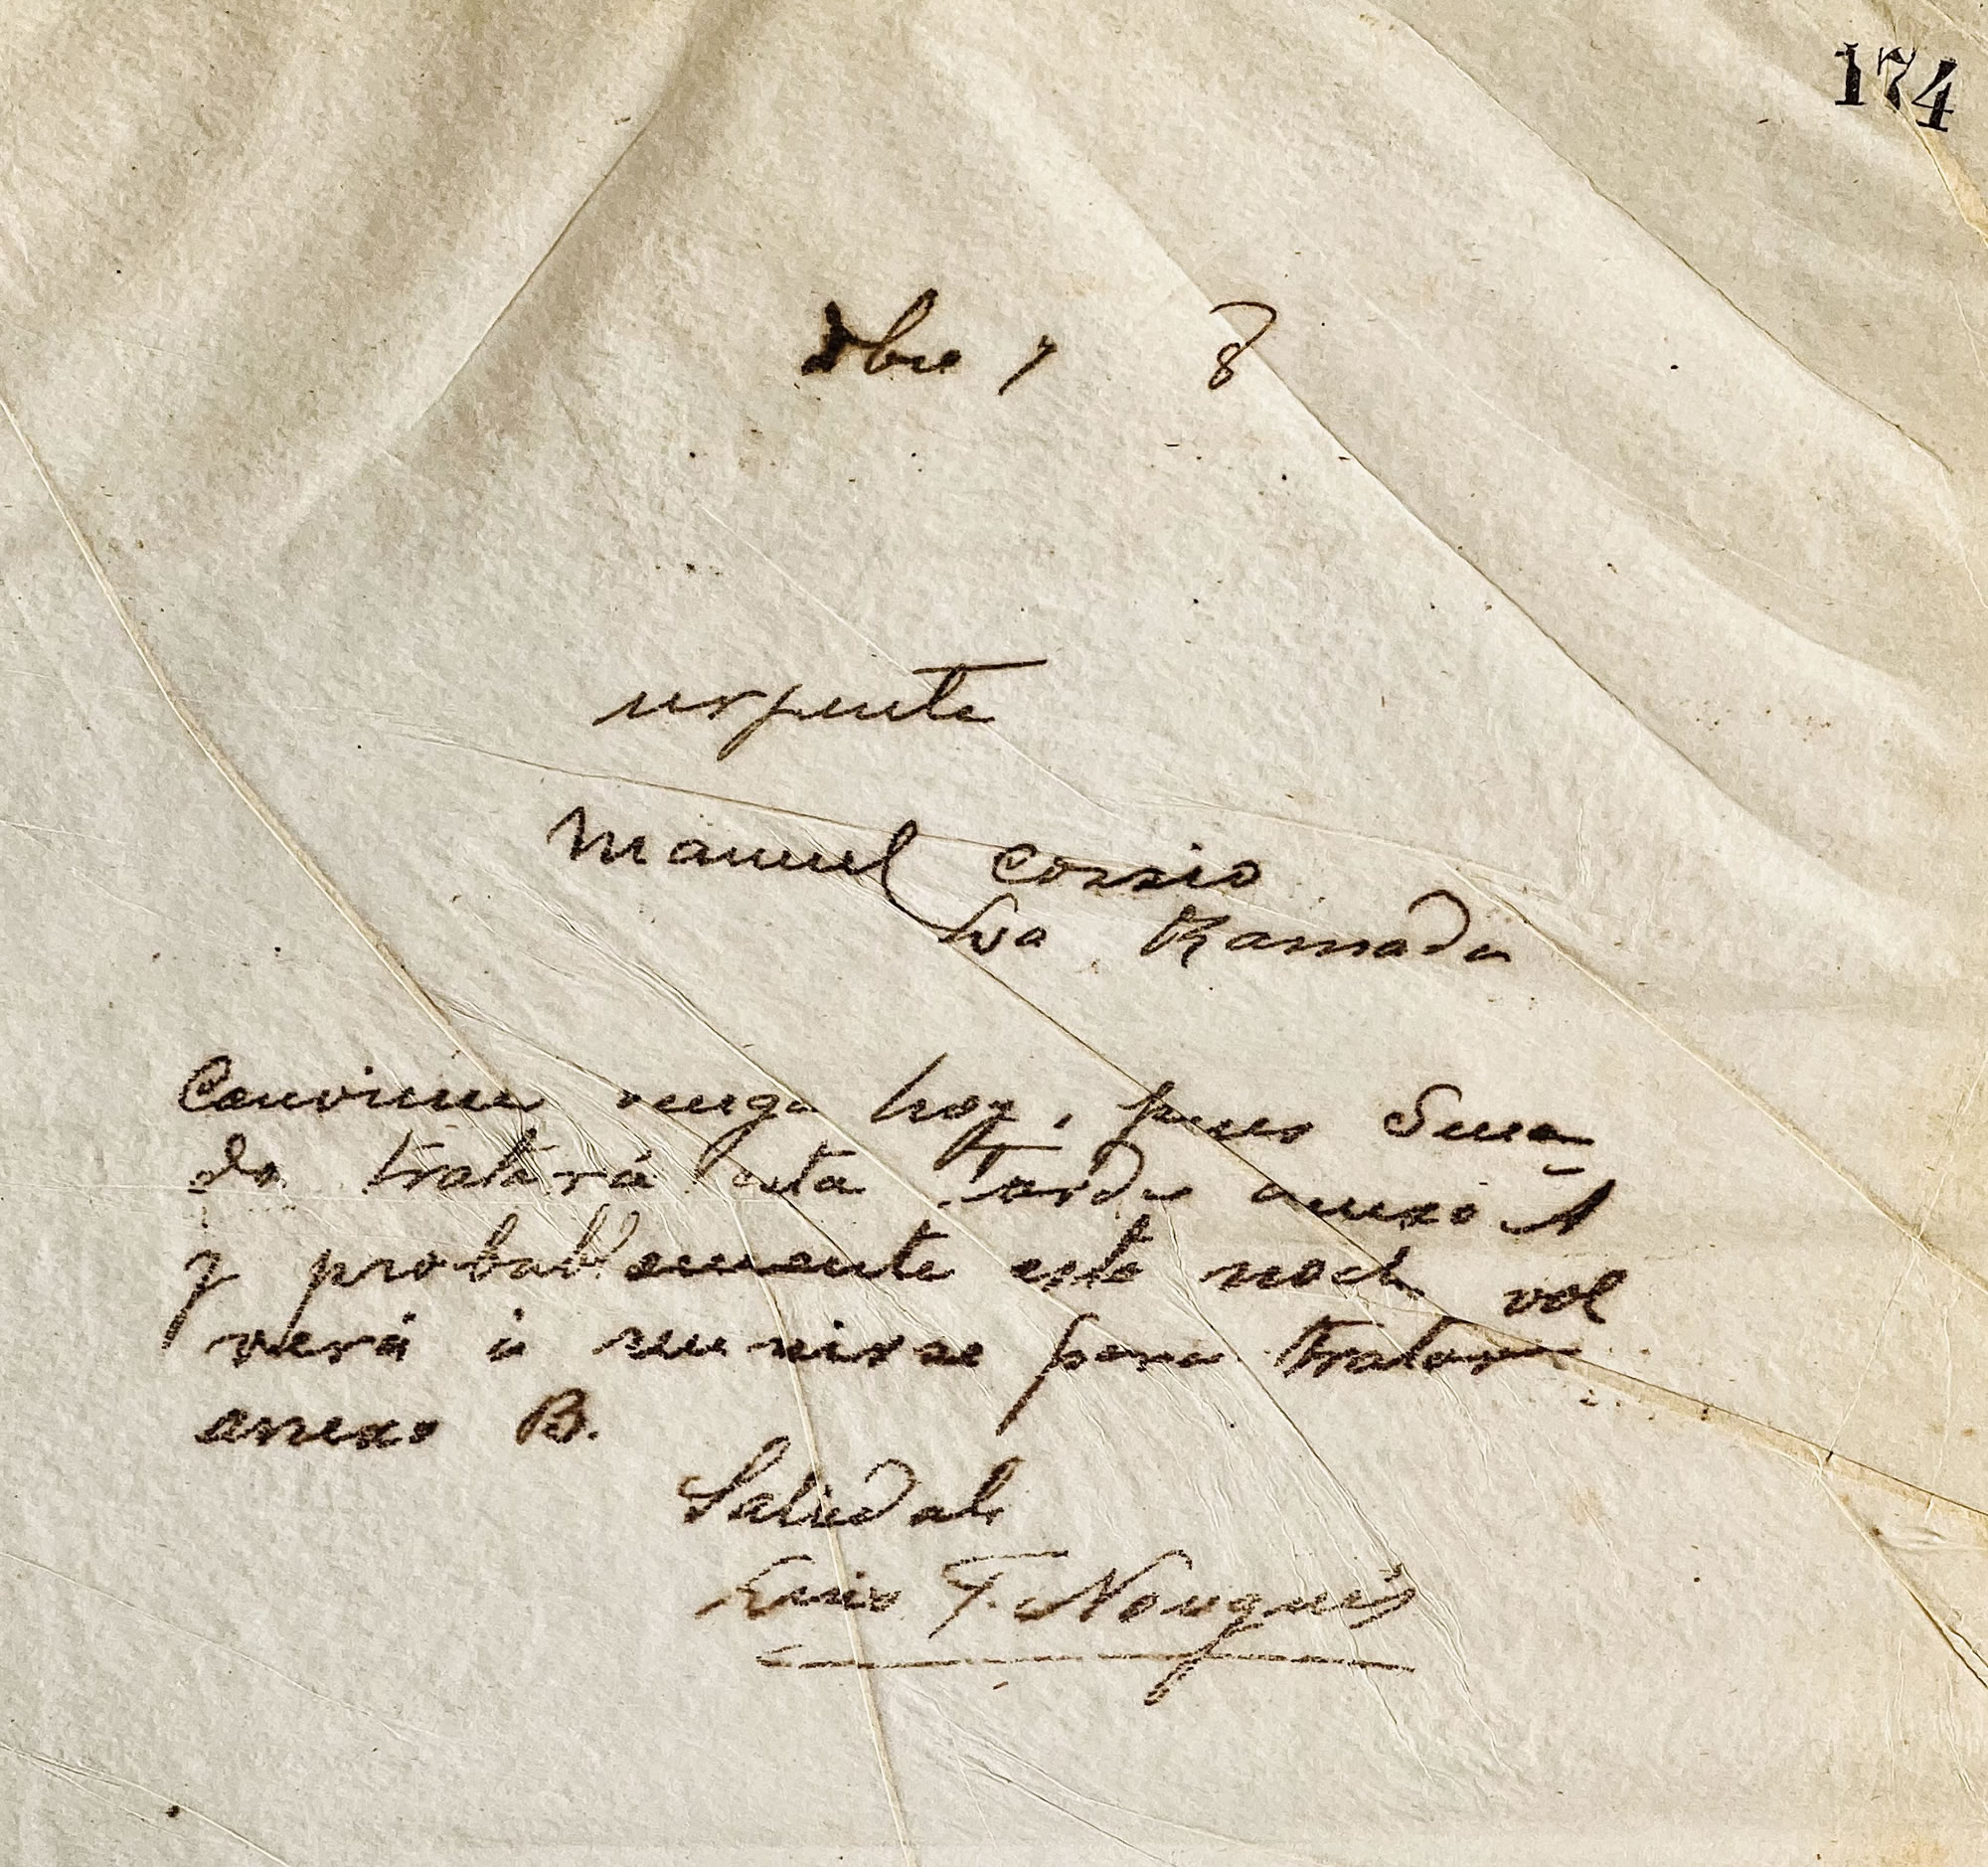 174
Dbre 7 8
urgente
Manuel Cossio
Ramada
Conviene venga hoy, pues Sena-
do tratará esta tarde anexo A
y probablemente esta noche vol
verá á reunirse para tratar
anexo B.
Salúdalo
Luis F. Nougués